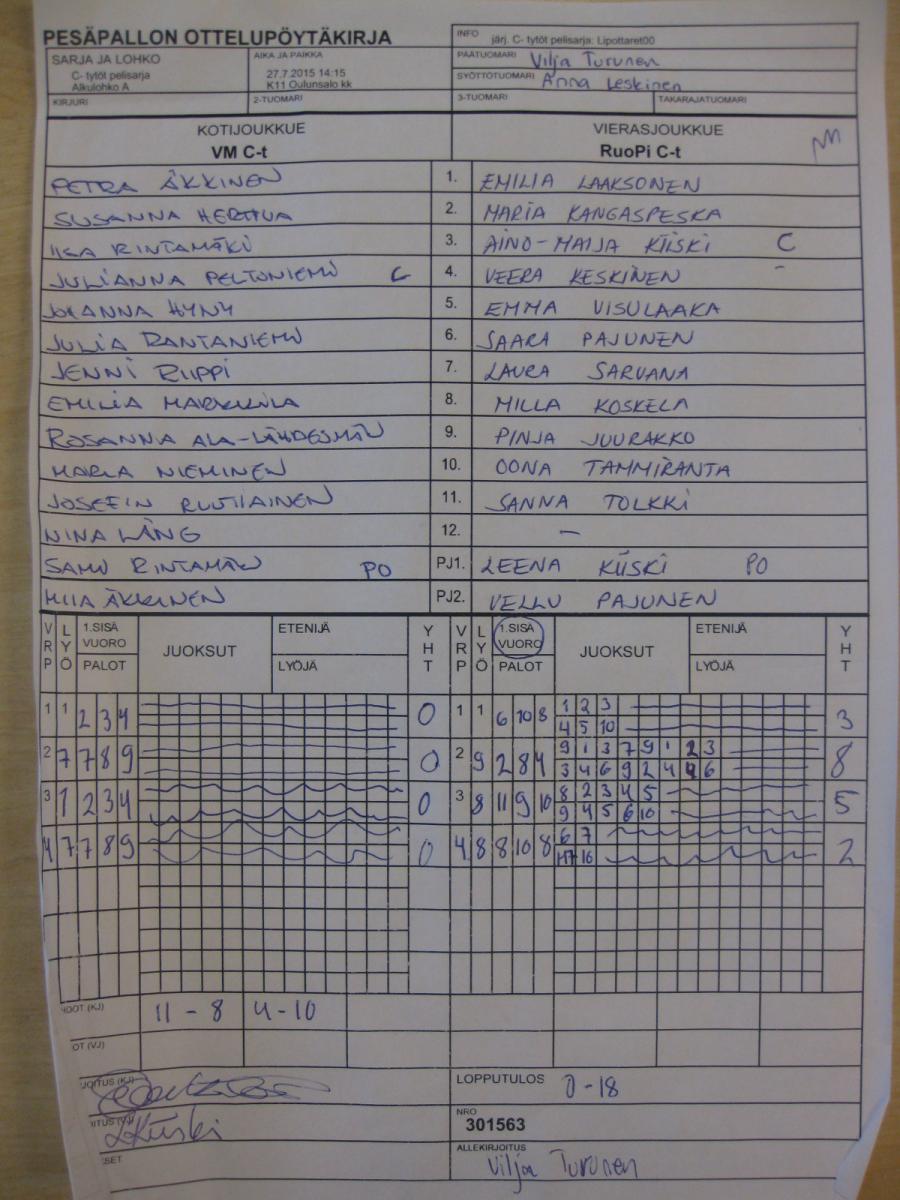 PESÄPALLON OTTELUPÖYTÄKIRJA
INFO järj. C- tytöt pelisarja: Lipottaret00
SARJA JA LOHKO
C- tytöt pelisarja
Alkulohko A
AIKA JA PAIKKA
27.7.2015 14:15
K11 Oulunsalo kk
PÄÄTUOMARI Vilja Turunen
SYÖTTÖTUOMARI Anna Leskinen
KIRJURI 2-TUOMARI 3-TUOMARI TAKARAJATUOMARI
KOTIJOUKKUE VIERASJOUKKUE
VM C-t RuoPi C-t
PETRA ÄKKINEN 1. EMILIA LAAKSONEN
SUSANNA HERTTUA 2. MARIA KANGASPESKA
IIGA RINTAMÄKI 3. AINO-MAIJA KIISKI C
JULIANNA PELTONIEMI C 4. VEERA KESKINEN
JOHANNA HYNY 5. EMMA VISULAAKA
JULIA RANTANIEMI 6. SAARA PAJUNEN
JENNI RIIPPI 7. LAURA SARVANA
EMILIA MARKKILA 8. MILLA KOSKELA
ROSANNA ALA-LÄHDESMÄKI 9. PINJA JUURAKKO
MARIA NIEMINEN 10. OONA TAMMIRANTA
JOSEFIN RUTIIAINEN 11. SANNA TOLKKI
NINA LÅNG 12. —
SAMU RINTAMÄKI PO PJ1. LEENA KIISKI PO
MIIA ÄKKINEN PJ2. VELLU PAJUNEN
VRP LYÖ 1.SISÄ VUORO PALOT JUOKSUT ETENIJÄ LYÖJÄ YHT VRP LYÖ 1.SISÄ VUORO PALOT JUOKSUT ETENIJÄ LYÖJÄ YHT
1 1 2 3 4 0 1 1 6 10 8 1 2 3 3
4 5 10
2 7 7 8 9 0 2 9 2 8 4 9 1 3 7 9 1 2 3 8
3 4 6 9 2 4 4 6
3 1 2 3 4 0 3 8 11 9 10 8 2 3 4 5 5
9 4 5 6 10
4 7 7 8 9 0 4 8 8 10 8 6 7 2
10
OOT (KJ) 11 - 8 4 - 10
OT (VJ)
JOITUS (KJ)
LOPPUTULOS 0 - 18
ITUS (VJ) LKiiski
NRO
301563
SET
ALLEKIRJOITUS
Vilja Turunen